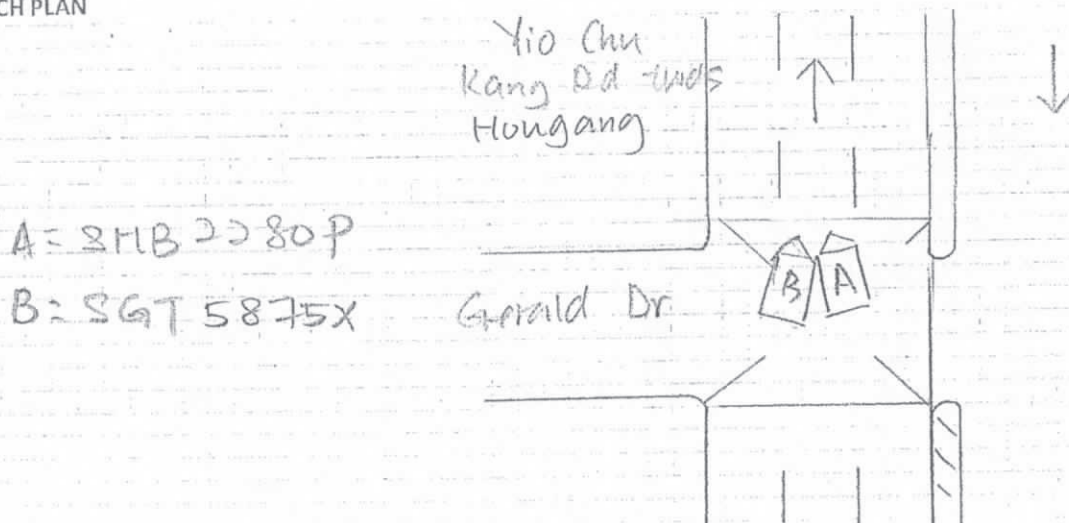 CH PLAN
Yio Chu
Kang Rd twds
Hougang
A = SMB 2280P
B = SGT 5875X
Gerald Dr
B
A